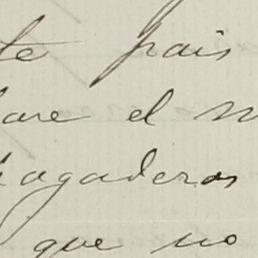 te pais
are el
pagaderos
que no